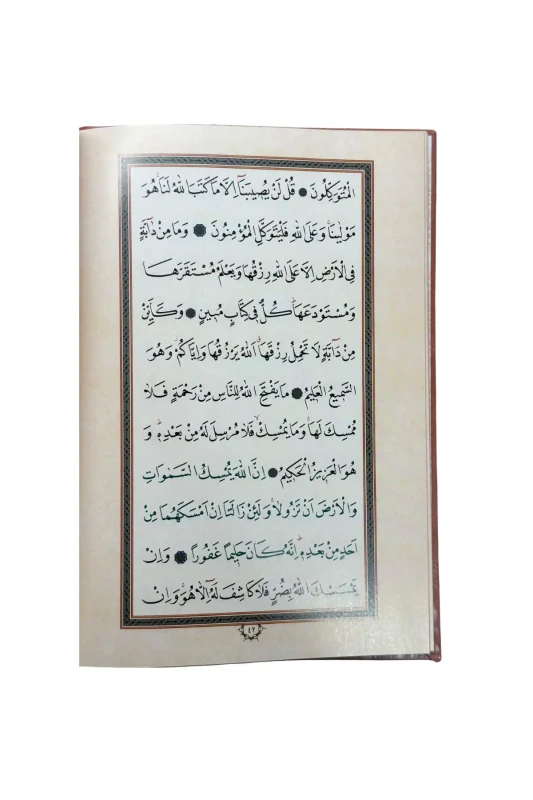 الْمُتَوَكِّلُونَ ۞ قُلْ لَنْ يُصِيبَنَٓا اِلَّا مَا كَتَبَ اللّٰهُ لَنَاۚ هُوَ
مَوْلٰينَاۚ وَعَلَى اللّٰهِ فَلْيَتَوَكَّلِ الْمُؤْمِنُونَ ۞ وَمَا مِنْ دَٓابَّةٍ
فِي الْاَرْضِ اِلَّا عَلَى اللّٰهِ رِزْقُهَا وَيَعْلَمُ مُسْتَقَرَّهَا
وَمُسْتَوْدَعَهَاۜ كُلٌّ فِي كِتَابٍ مُبِينٍ ۞ وَكَاَيِّنْ
مِنْ دَٓابَّةٍ لَا تَحْمِلُ رِزْقَهَاۗ اَللّٰهُ يَرْزُقُهَا وَاِيَّاكُمْۘ وَهُوَ
السَّمِيعُ الْعَلِيمُ ۞ مَا يَفْتَحِ اللّٰهُ لِلنَّاسِ مِنْ رَحْمَةٍ فَلَا
مُمْسِكَ لَهَاۚ وَمَا يُمْسِكْۙ فَلَا مُرْسِلَ لَهُ مِنْ بَعْدِهِۜ وَ
هُوَ الْعَزِيزُ الْحَكِيمُ ۞ اِنَّ اللّٰهَ يُمْسِكُ السَّمٰوَاتِ
وَالْاَرْضَ اَنْ تَزُولَاۚ وَلَئِنْ زَالَتَٓا اِنْ اَمْسَكَهُمَا مِنْ
اَحَدٍ مِنْ بَعْدِهِۜ اِنَّهُ كَانَ حَلِيمًا غَفُورًا ۞ وَاِنْ
يَمْسَسْكَ اللّٰهُ بِضُرٍّ فَلَا كَاشِفَ لَهُٓ اِلَّا هُوَۚ وَاِنْ
٤٢